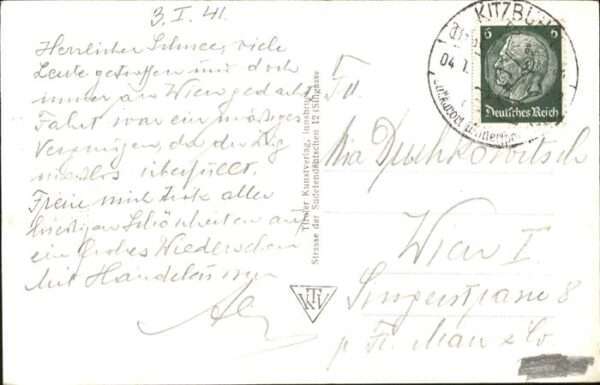 3. I. 41.
Herrlicher Schnee, viele
Leute getroffen und doch
immer an Wien gedacht
Fahrt war ein mäßiges
Vergnügen, da der Zug
maßlos überfüllt.
Freue mich trotz aller
hiesigen Schönheiten auf
ein frohes Wiedersehen
Mit Handküssen
Tiroler Kunstverlag, Innsbruck
Strasse der Sudetendeutschen 12 (Sillgasse)
KTV
KITZBÜHEL
04.1.
6 6
Deutsches Reich
Frl.
Ria
Wien I
Singerstrasse 8
p. Fr. Mau & Co